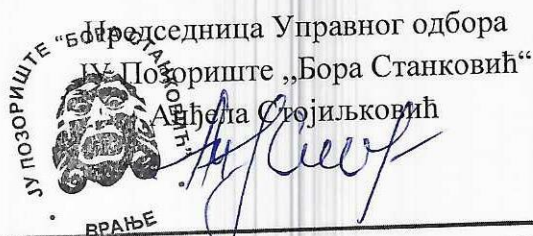 Председница Управног одбора
ЈУ Позориште „Бора Станковић“
Анђела Стојиљковић
ЈУ ПОЗОРИШТЕ "БОРА СТАНКОВИЋ"
ВРАЊЕ